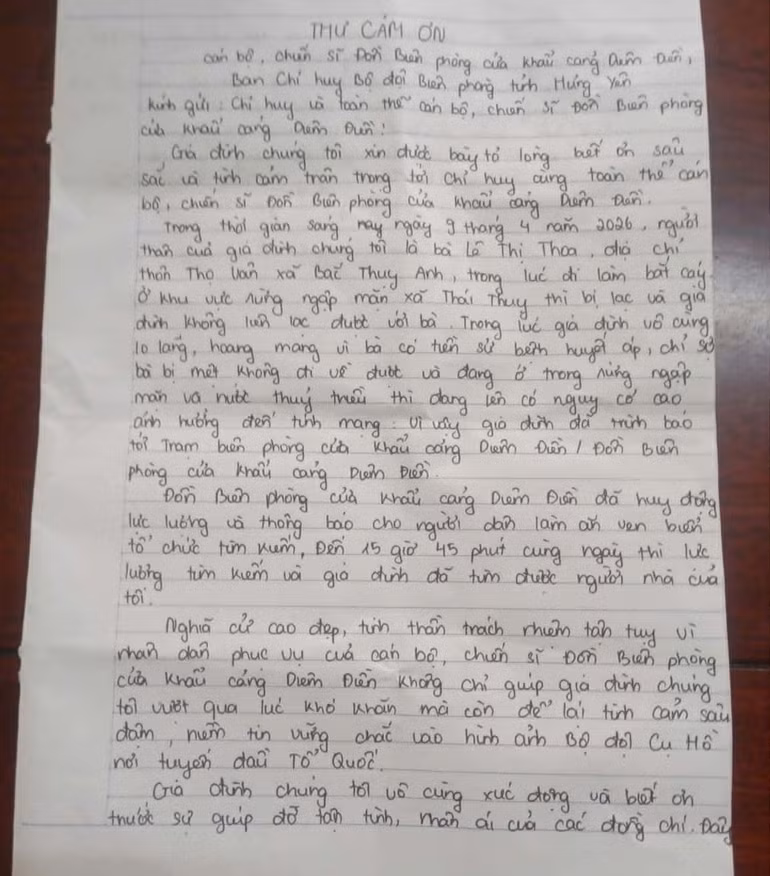 THƯ CẢM ƠN
cán bộ, chiến sĩ Đồn Biên phòng cửa khẩu cảng Diêm Điền,
Ban Chỉ huy Bộ đội Biên phòng tỉnh Hưng Yên
Kính gửi: Chỉ huy và toàn thể cán bộ, chiến sĩ Đồn Biên phòng
cửa khẩu cảng Diêm Điền!
Gia đình chúng tôi xin được bày tỏ lòng biết ơn sâu
sắc và tình cảm trân trọng tới Chỉ huy cùng toàn thể cán
bộ, chiến sĩ Đồn Biên phòng cửa khẩu cảng Diêm Điền.
Trong thời gian sáng nay ngày 9 tháng 4 năm 2026, người
thân của gia đình chúng tôi là bà Lê Thị Thoa, địa chỉ
thôn Thọ Vân xã Bắc Thụy Anh, trong lúc đi làm bắt cáy
ở khu vực rừng ngập mặn xã Thái Thụy thì bị lạc và gia
đình không liên lạc được với bà. Trong lúc gia đình vô cùng
lo lắng, hoang mang vì bà có tiền sử bệnh huyết áp, chỉ sợ
bà bị mệt không đi về được và đang ở trong rừng ngập
mặn và nước thuỷ triều thì đang lên có nguy cơ cao
ảnh hưởng đến tính mạng. Vì vậy gia đình đã trình báo
tới Trạm biên phòng cửa khẩu cảng Diêm Điền / Đồn Biên
phòng cửa khẩu cảng Diêm Điền.
Đồn Biên phòng cửa khẩu cảng Diêm Điền đã huy động
lực lượng và thông báo cho người dân làm ăn ven biển
tổ chức tìm kiếm, Đến 15 giờ 45 phút cùng ngày thì lực
lượng tìm kiếm và gia đình đã tìm được người nhà của
tôi.
Nghĩa cử cao đẹp, tinh thần trách nhiệm tận tụy vì
nhân dân phục vụ của cán bộ, chiến sĩ Đồn Biên phòng
cửa khẩu cảng Diêm Điền không chỉ giúp gia đình chúng
tôi vượt qua lúc khó khăn mà còn để lại tình cảm sâu
đậm, niềm tin vững chắc vào hình ảnh Bộ đội Cụ Hồ
nơi tuyến đầu Tổ Quốc.
Gia đình chúng tôi vô cùng xúc động và biết ơn
trước sự giúp đỡ tận tình, nhân ái của các đồng chí. Đây